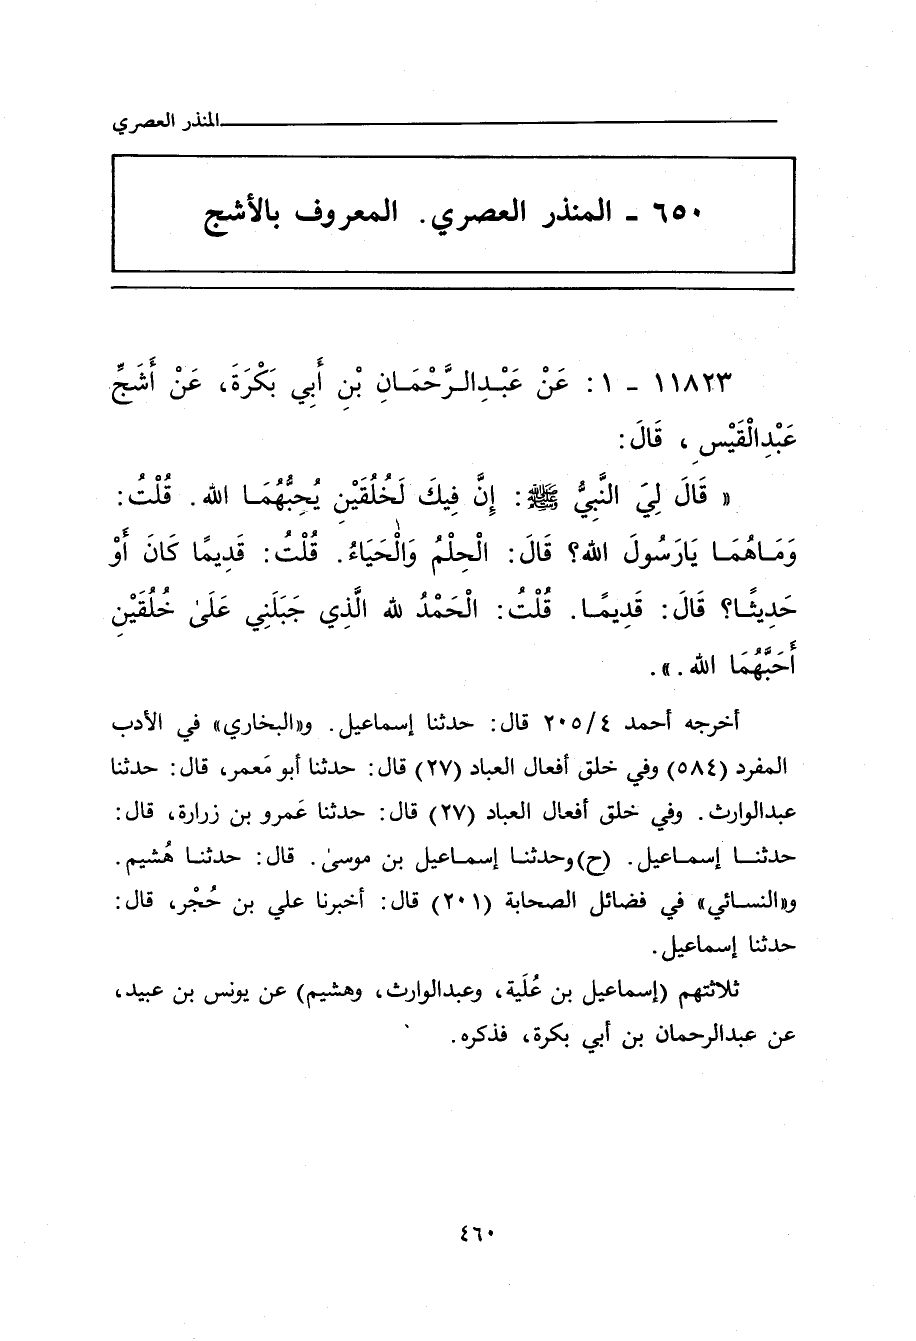 المنذر العصري
٦٥٠ - المنذر العصري. المعروف بالأشج
١١٨٢٣ - ١: عَنْ عَبْدِالرَّحْمَانِ بْنِ أَبِي بَكْرَةَ، عَنْ أَشَجِّ
عَبْدِالْقَيْسِ، قَالَ:
« قَالَ لِيَ النَّبِيُّ ﷺ: إِنَّ فِيكَ لَخُلُقَيْنِ يُحِبُّهُمَا الله. قُلْتُ:
وَمَاهُمَا يَارَسُولَ الله؟ قَالَ: الْحِلْمُ وَالْحَيَاءُ. قُلْتُ: قَدِيمًا كَانَ أَوْ
حَدِيثًا؟ قَالَ: قَدِيمًا. قُلْتُ: الْحَمْدُ لله الَّذِي جَبَلَنِي عَلَىٰ خُلُقَيْنِ
أَحَبَّهُمَا الله.».
أخرجه أحمد ٢٠٥/٤ قال: حدثنا إسماعيل. و«البخاري» في الأدب
المفرد (٥٨٤) وفي خلق أفعال العباد (٢٧) قال: حدثنا أبو مَعمر، قال: حدثنا
عبدالوارث. وفي خلق أفعال العباد (٢٧) قال: حدثنا عَمرو بن زرارة، قال:
حدثنا إسماعيل. (ح)وحدثنا إسماعيل بن موسىٰ. قال: حدثنا هُشيم.
و«النسائي» في فضائل الصحابة (٢٠١) قال: أخبرنا علي بن حُجْر، قال:
حدثنا إسماعيل.
ثلاثتهم (إسماعيل بن عُلَية، وعبدالوارث، وهشيم) عن يونس بن عبيد،
عن عبدالرحمان بن أبي بكرة، فذكره.
٤٦٠